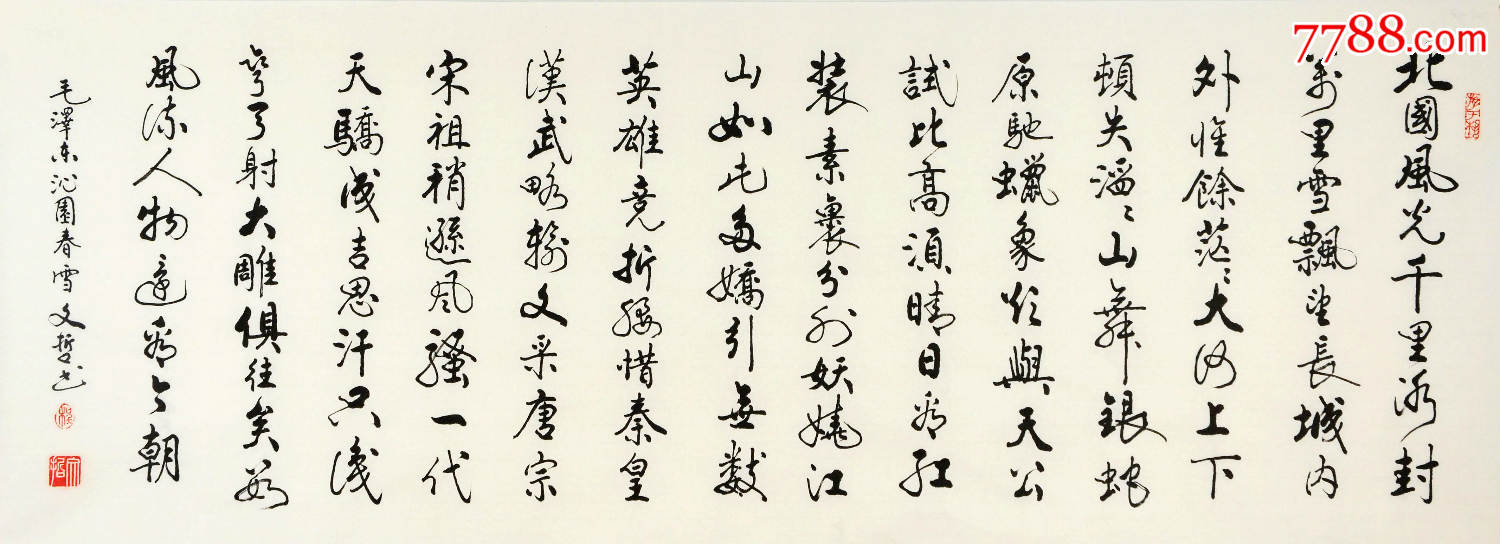 7788.com
北國風光千里冰封
萬里雪飄望長城內
外惟餘茫〻大河上下
頓失滔〻山舞銀蛇
原馳蠟象欲與天公
試比高須晴日看紅
裝素裹分外妖嬈江
山如此多嬌引無數
英雄竞折腰惜秦皇
漢武略輸文采唐宗
宋祖稍遜风騷一代
天驕成吉思汗只識
彎弓射大雕俱往矣數
風流人物還看今朝
毛澤東沁園春雪 文哲书